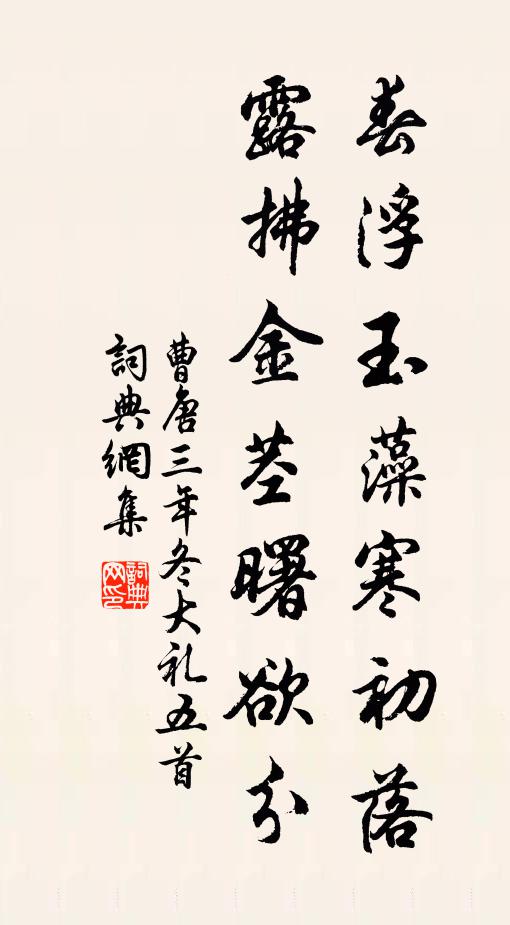 春浮玉藻寒初落
露拂金茎曙欲分
曹唐三年冬大礼五首
詞典網集
詞典网印